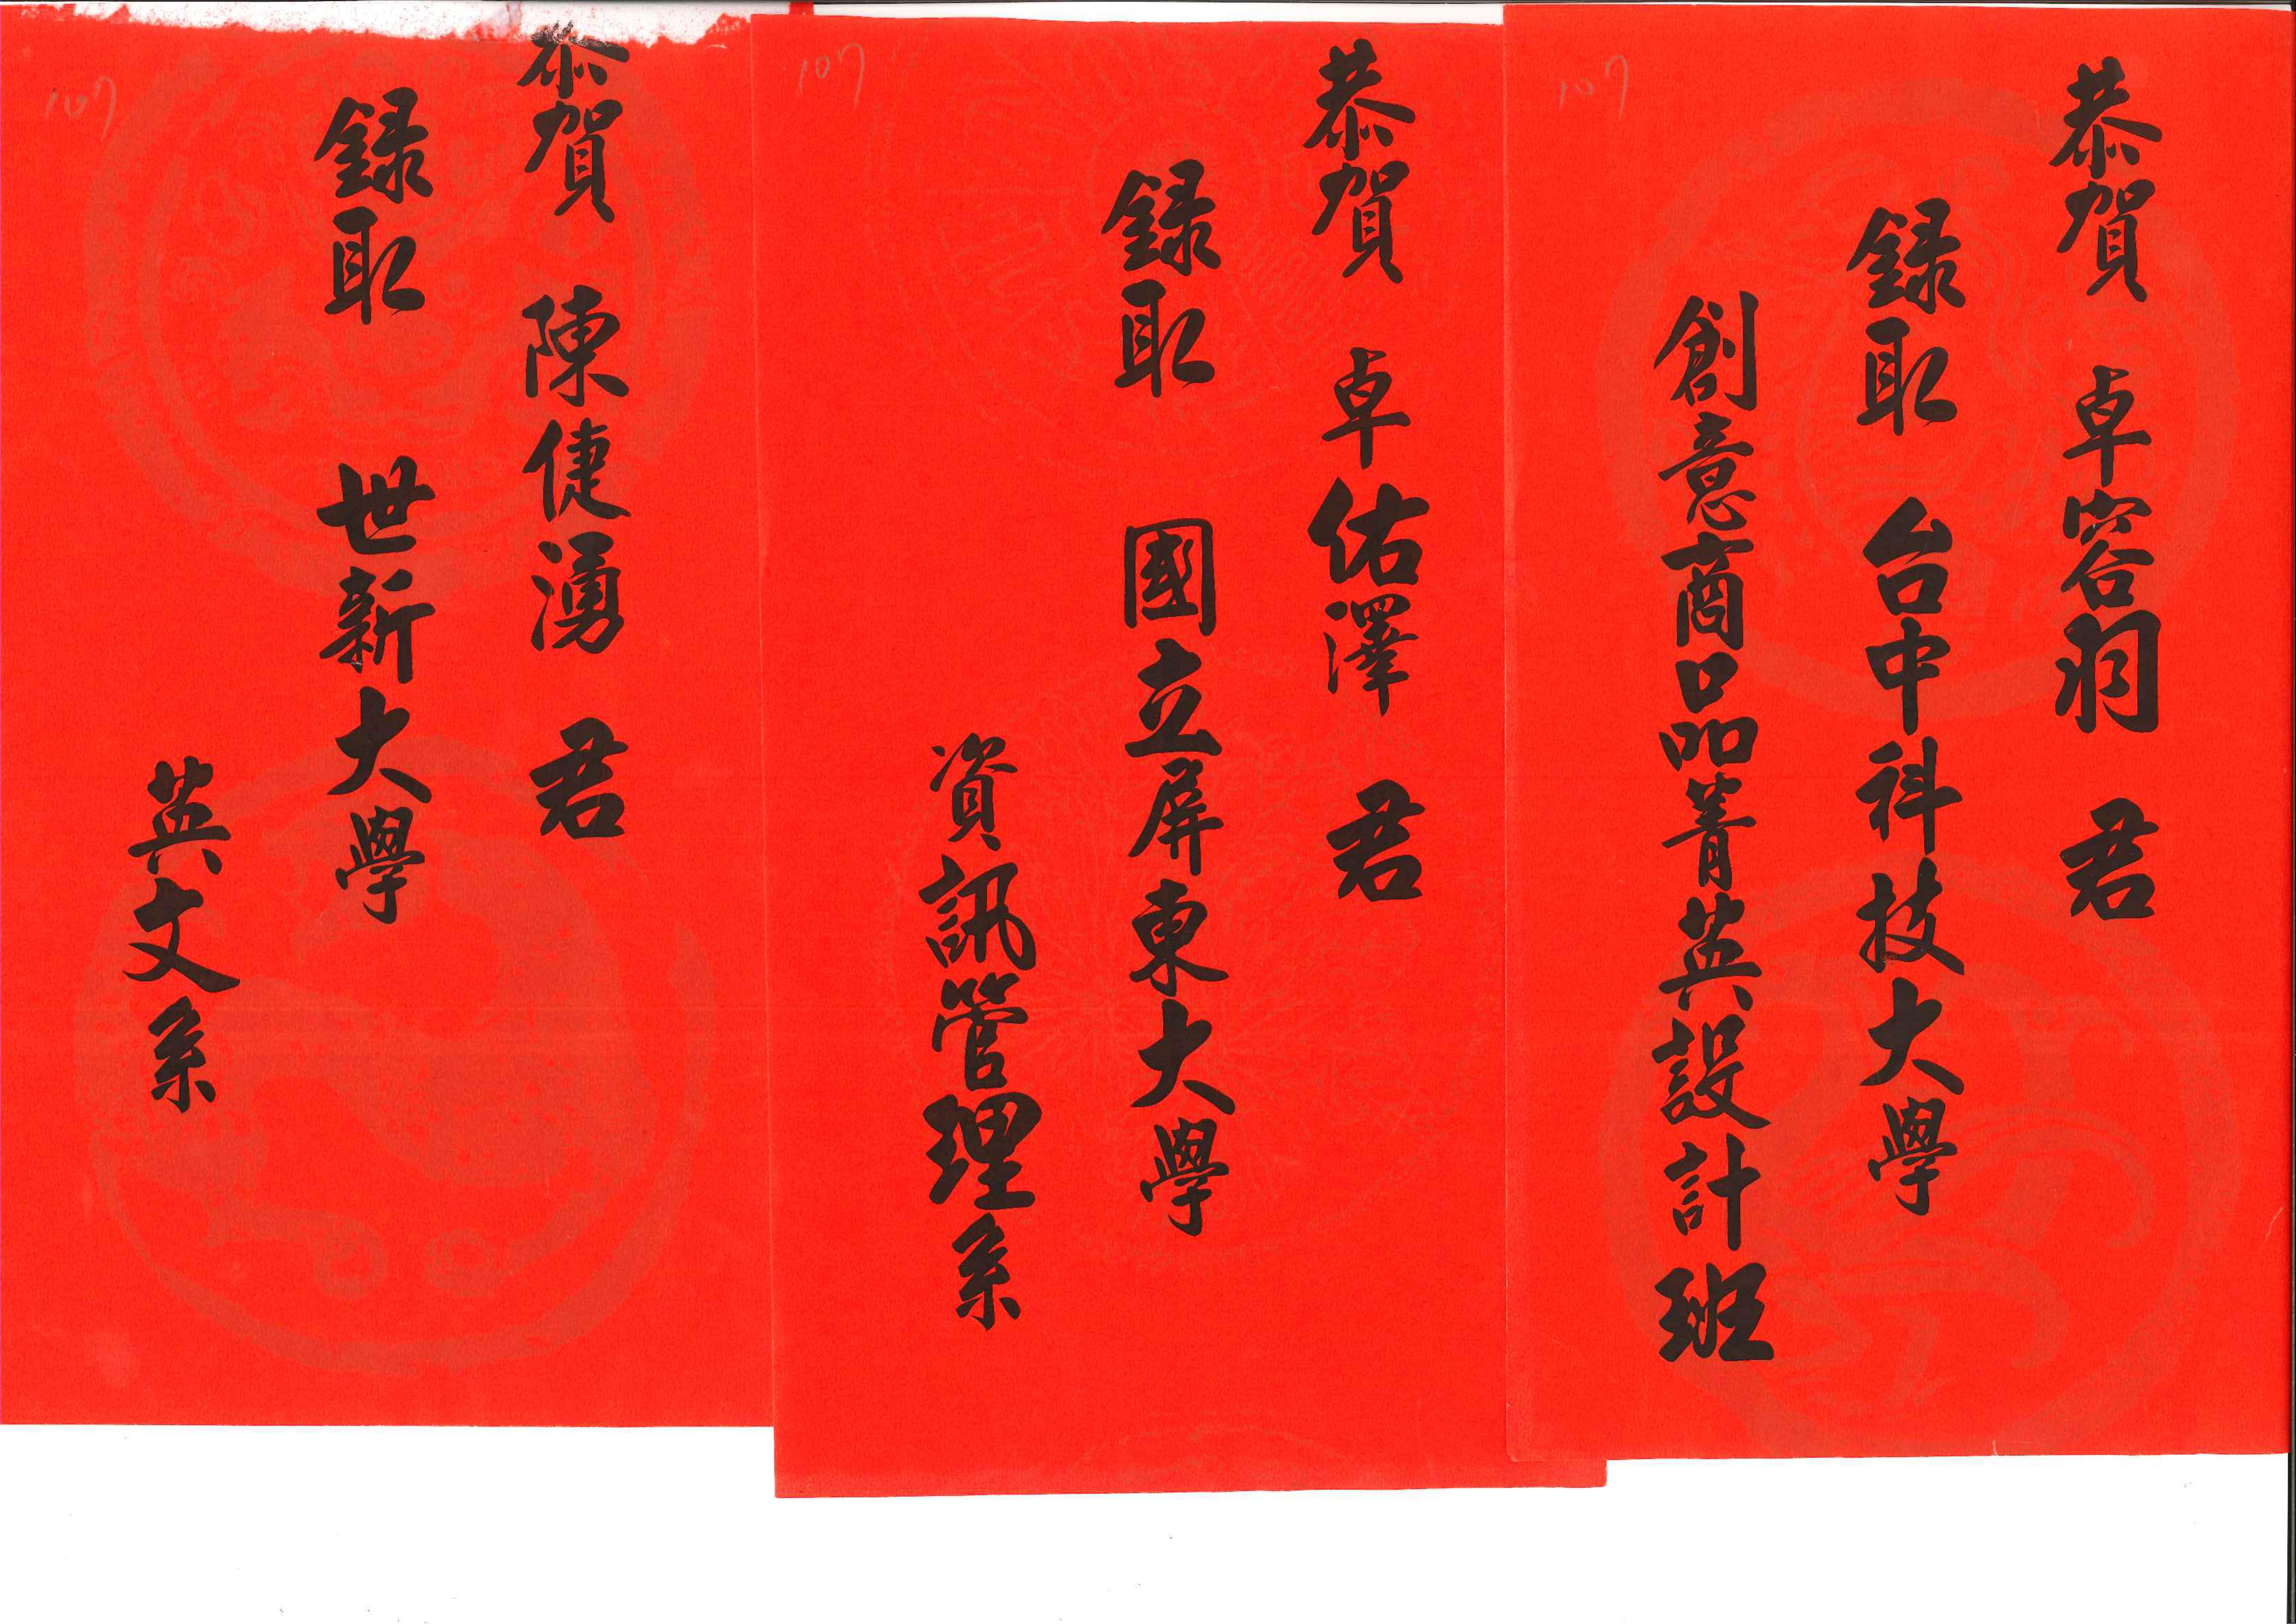 107
恭賀 卓容羽 君
錄取 台中科技大學
創意商品菁英設計班
107
恭賀 卓佑澤 君
錄取 國立屏東大學
資訊管理系
107
恭賀 陳倢湧 君
錄取 世新大學
英文系